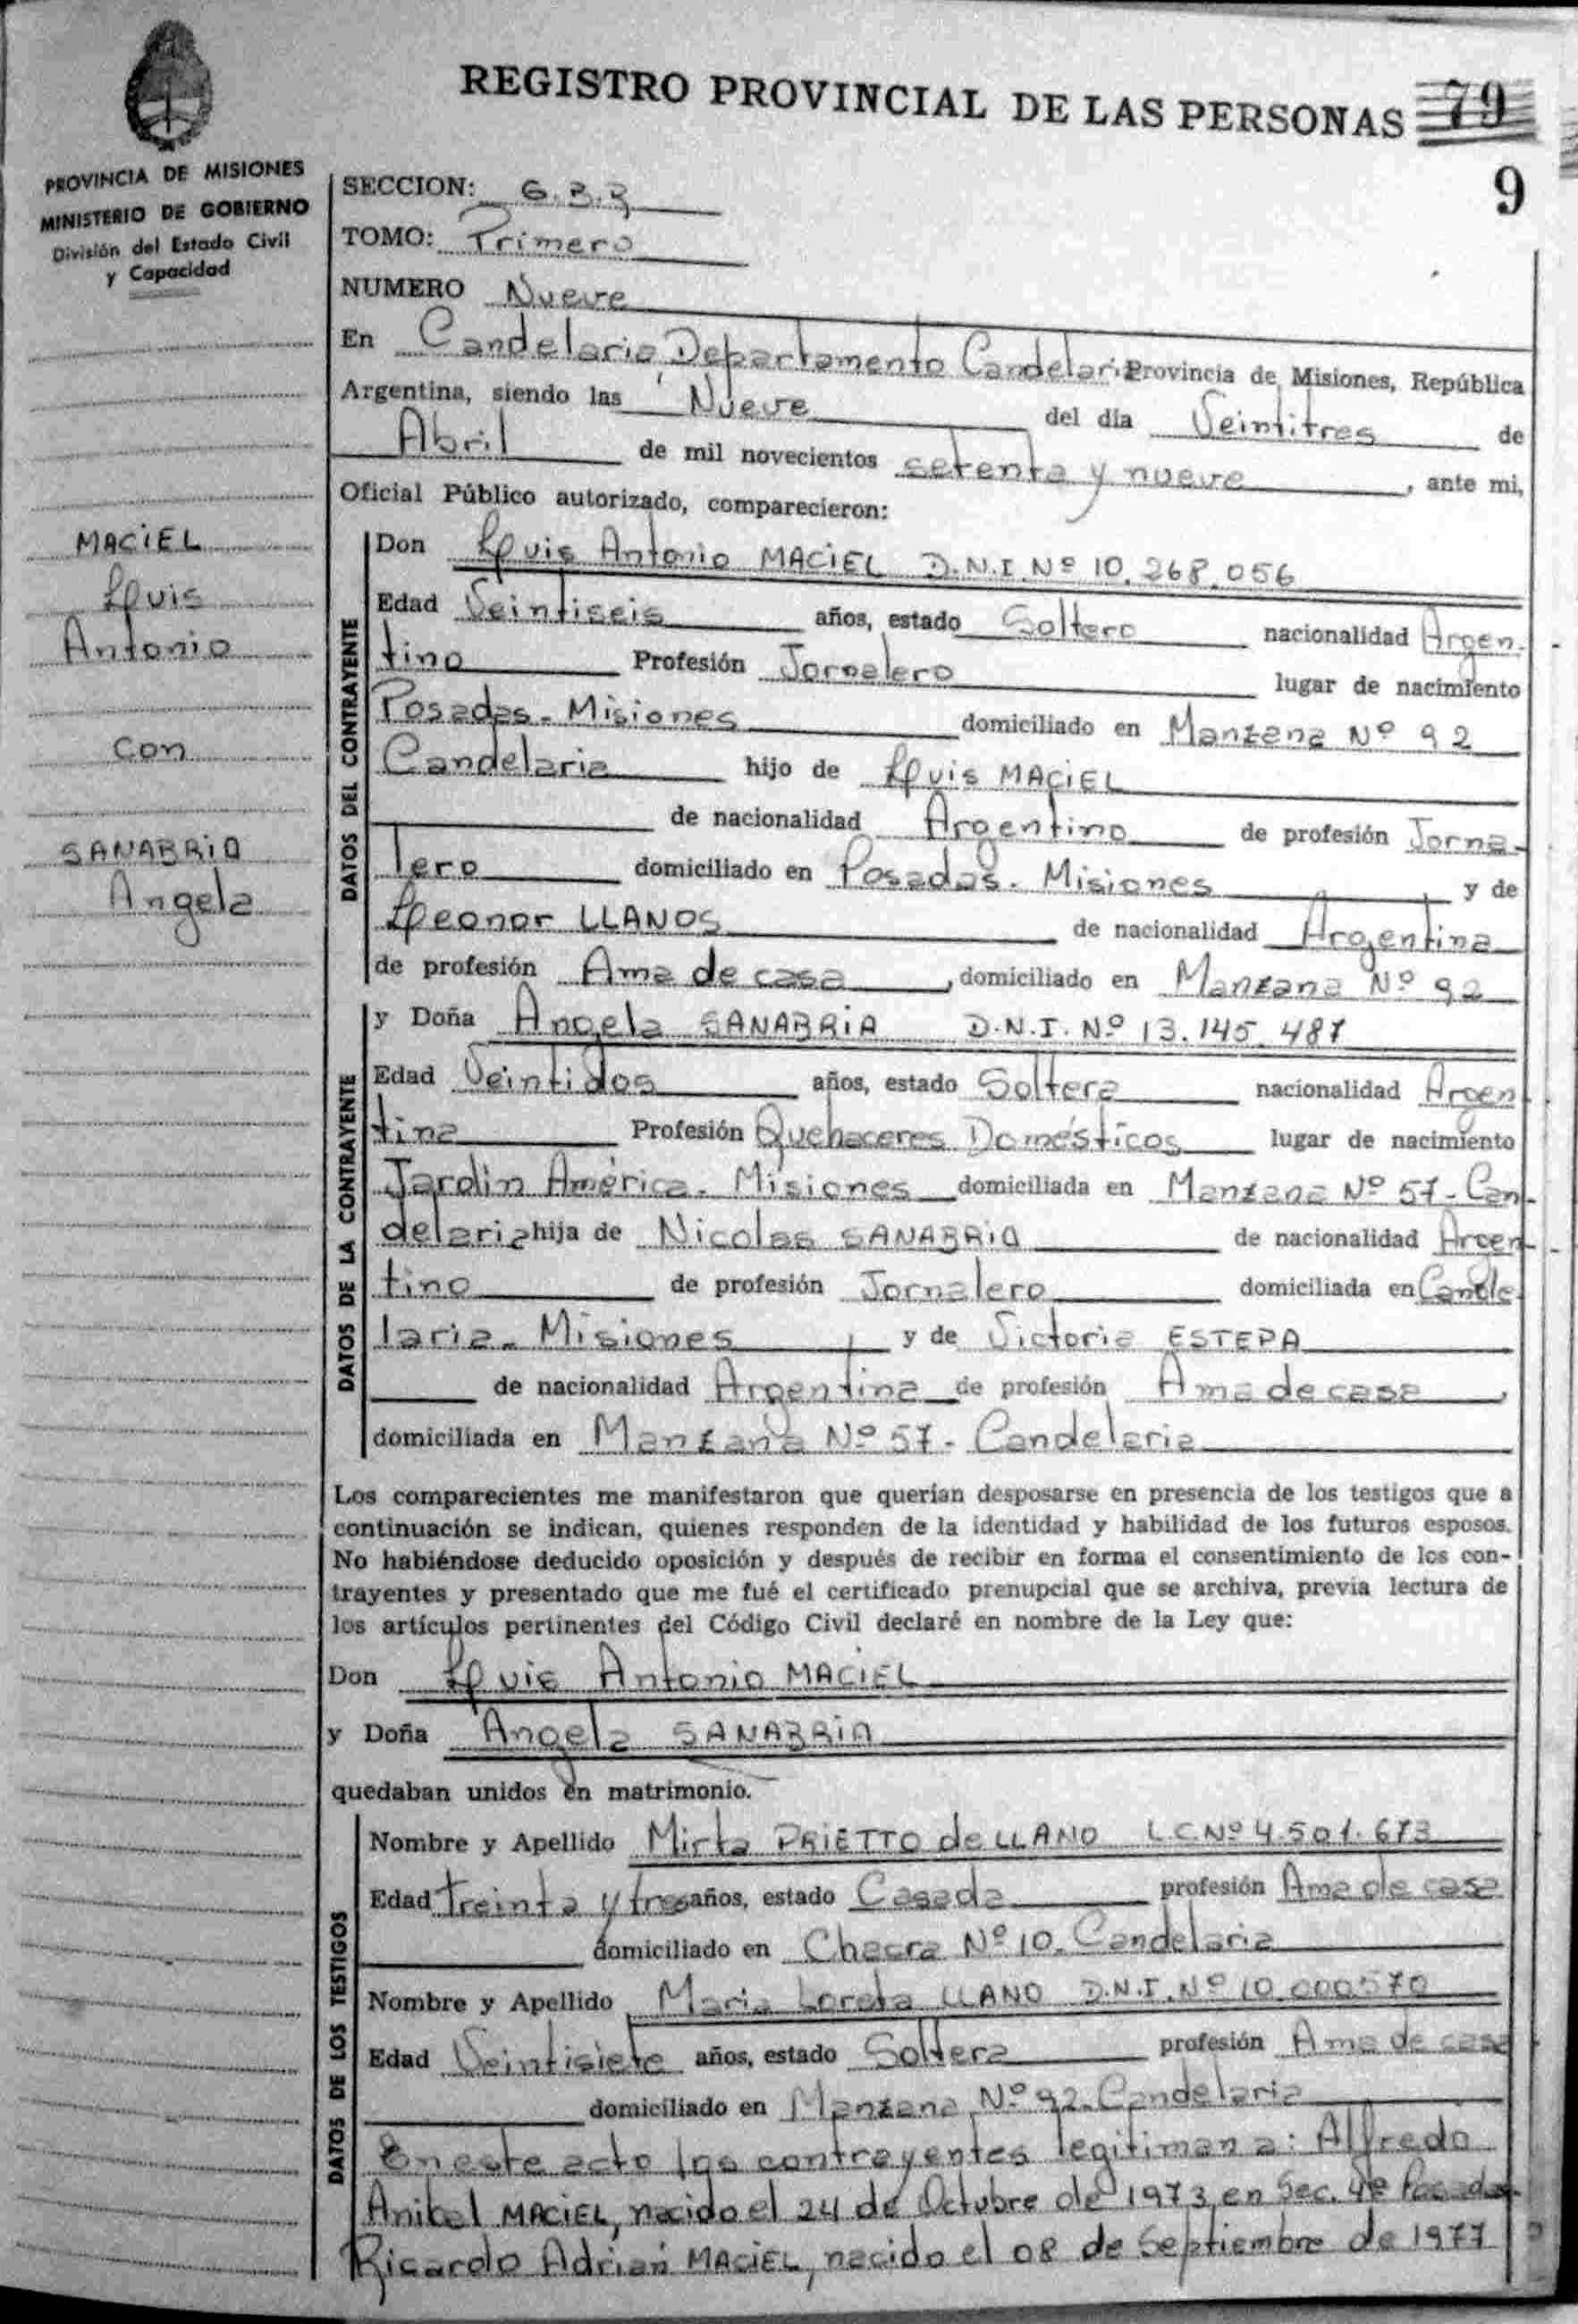 REGISTRO PROVINCIAL DE LAS PERSONAS 79
9
PROVINCIA DE MISIONES
MINISTERIO DE GOBIERNO
División del Estado Civil
y Capacidad
SECCION:
TOMO: Primero
NUMERO Nueve
En Candelaria, Departamento Candelaria Provincia de Misiones, República
Argentina, siendo las Nueve del día Veintitres de
Abril de mil novecientos setenta y nueve, ante mi,
Oficial Público autorizado, comparecieron:
MACIEL
Luis
Antonio
con
SANABRIA
Angela
DATOS DEL CONTRAYENTE
Don Luis Antonio MACIEL D.N.I. Nº 10.268.056
Edad Veintiseis años, estado Soltero nacionalidad Argen-
tino Profesión Jornalero lugar de nacimiento
Posadas - Misiones domiciliado en Manzana Nº 92
Candelaria hijo de Luis MACIEL
de nacionalidad Argentino de profesión Jorna-
lero domiciliado en Posadas - Misiones y de
Leonor LLANOS de nacionalidad Argentina
de profesión Ama de casa, domiciliado en Manzana Nº 92
DATOS DE LA CONTRAYENTE
y Doña Angela SANABRIA D.N.I. Nº 13.145.487
Edad Veintidos años, estado Soltera nacionalidad Argen
tina Profesión Quehaceres Domésticos lugar de nacimiento
Jardín América - Misiones domiciliada en Manzana Nº 57 - Can
delaria hija de Nicolas SANABRIA de nacionalidad Argen
tino de profesión Jornalero domiciliada en Cande
laria - Misiones y de Victoria ESTEPA
de nacionalidad Argentina de profesión Ama de casa,
domiciliada en Manzana Nº 57 - Candelaria
Los comparecientes me manifestaron que querían desposarse en presencia de los testigos que a
continuación se indican, quienes responden de la identidad y habilidad de los futuros esposos.
No habiéndose deducido oposición y después de recibir en forma el consentimiento de los con-
trayentes y presentado que me fué el certificado prenupcial que se archiva, previa lectura de
los artículos pertinentes del Código Civil declaré en nombre de la Ley que:
Don Luis Antonio MACIEL
y Doña Angela SANABRIA
quedaban unidos en matrimonio.
DATOS DE LOS TESTIGOS
Nombre y Apellido Mirta PRIETTO de LLANO L.C. Nº 4.501.673
Edad Treinta y tres años, estado Casada profesión Ama de casa
domiciliado en Chacra Nº 10 - Candelaria
Nombre y Apellido Maria Loreta LLANO D.N.I. Nº 10.000570
Edad Veintisiete años, estado Soltera profesión Ama de casa
domiciliado en Manzana Nº 92 - Candelaria
En este acto los contrayentes legitiman a: Alfredo
Anibal MACIEL, nacido el 24 de Octubre de 1973, en Sec. 4ª Posadas
Ricardo Adrian MACIEL, nacido el 08 de Septiembre de 1977